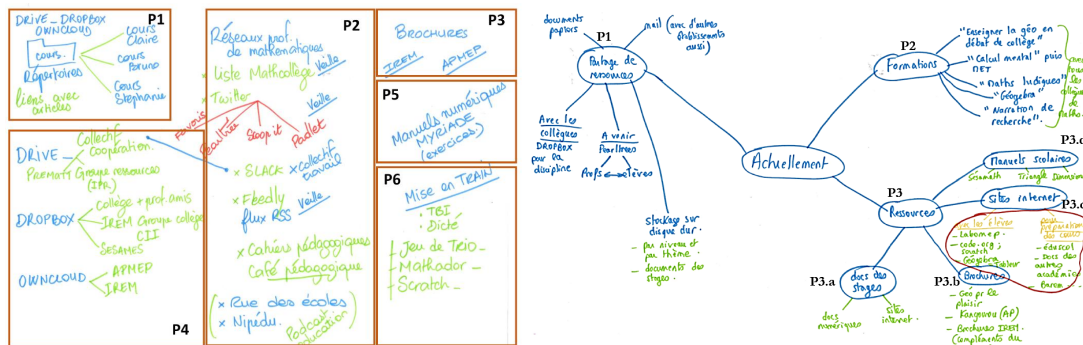 P1
DRIVE_DROPBOX
OWNCLOUD
cours.
Répertoires
liens avec
articles
cours
Claire
cours
Bruno
cours
Stéphanie
P2
Réseaux prof.
de mathématiques
x Liste Mathcollège
Veille
x Twitter
Veille
Favoris
Pearltrees
Scoop it
Padlet
x SLACK
x collectif
travail
x Feedly
flux RSS
Veille
x Cahiers pédagogiques
Café pédagogique
x Rue des écoles
x Nipédu.
Podcast
éducation
P3
BROCHURES
IREM
APMEP
P5
Manuels numériques
MYRIADE
(exercices)
P6
Mise en TRAIN
. TBI
. Dicté
_ Jeu de Trio_
_ Mathador_
_ Scratch_
Collectif
DRIVE_ Coopération.
PREMATT Groupe ressources
(IPR)
DROPBOX
Collège + prof. amis
IREM Groupe collège
CII
SESAMES
OWNCLOUD
APMEP
IREM
P4
documents
papiers
mail (avec d'autres
établissements
aussi)
P1
Partage de
ressources
Avec les
collègues
DROPBOX
pour la
discipline
A venir
Pearltrees
Profs
élèves
Stockage sur
disque dur.
- par niveau et
par thème.
- documents des
stages.
Actuellement
P2
Formations
"Enseigner la géo en
début de collège"
"Calcul mental" puis
NET
"Maths ludiques"
"Géogebra"
"Narration de
recherche".
P3
Ressources
Manuels scolaires
Sésamath
Triangle
Dimensions
Sites internet
les élèves
- Labomep
- code.org ;
scratch
Géogebra
Tableur
- éduscol
- Docs des
autres
académies
P3.a
docs des
stages
docs
numériques
sites
internet.
P3.b
Brochures
- Géo pr le
plaisir
- Kangourou (AP)
- Brochures IREM.
(compléments du